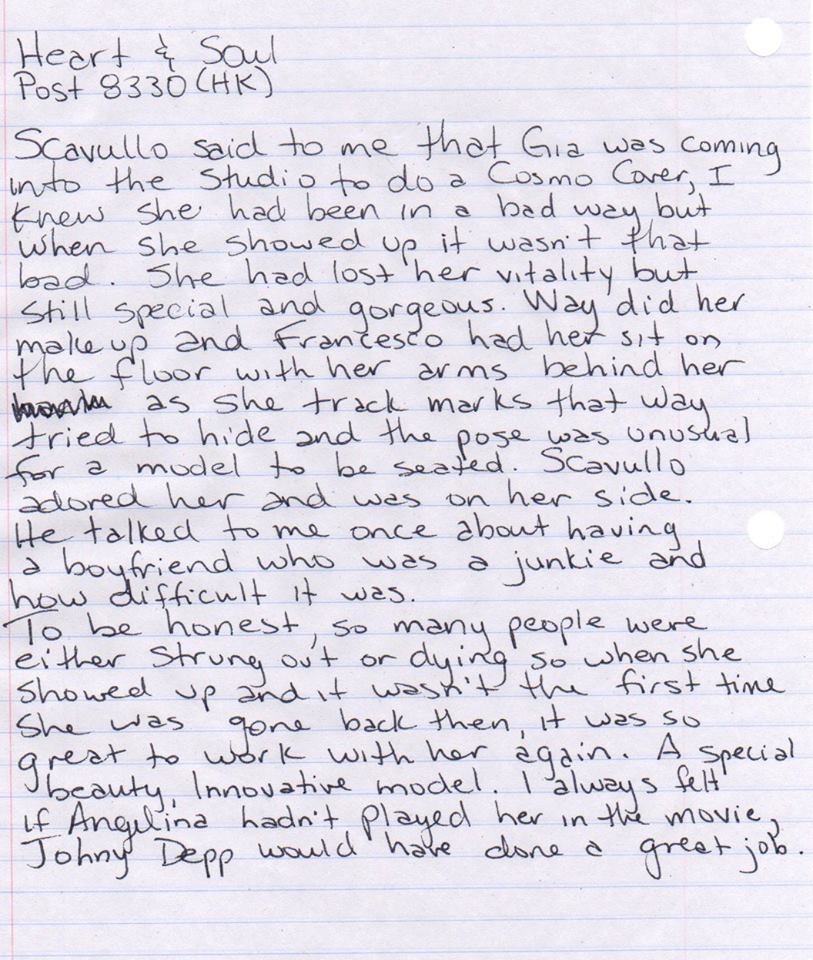 Heart & Soul
Post 8330 (HK)
Scavullo said to me that Gia was coming
into the Studio to do a Cosmo Cover, I
knew she had been in a bad way but
when she showed up it wasn't that
bad. She had lost her vitality but
still special and gorgeous. Way did her
makeup and Francesco had her sit on
the floor with her arms behind her
as she track marks that way
tried to hide and the pose was unusual
for a model to be seated. Scavullo
adored her and was on her side.
He talked to me once about having
a boyfriend who was a junkie and
how difficult it was.
To be honest, so many people were
either strung out or dying so when she
showed up and it wasn't the first time
she was gone back then, it was so
great to work with her again. A special
beauty, Innovative model. I always felt
if Angelina hadn't played her in the movie,
Johny Depp would have done a great job.